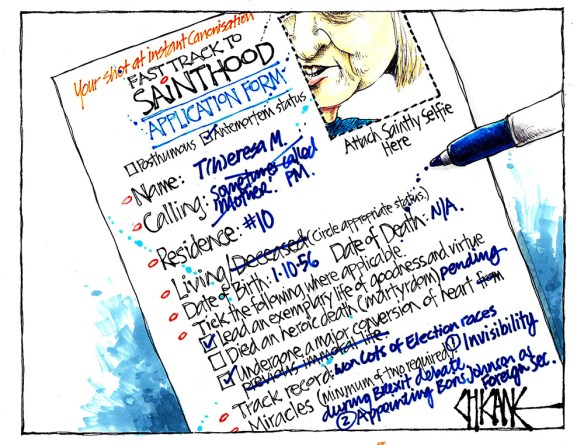 Your shot at instant Canonisation
FAST TRACK TO
SAINTHOOD
APPLICATION FORM
Posthumous Antemortem status
Attach Saintly Selfie
Here
Name: T(h)eresa M.
Calling: sometimes called
Mother. PM.
Residence: #10
Living / Deceased (Circle appropriate status.)
Date of Birth: 1·10·56 Date of Death: N/A.
Tick the following where applicable.
Lead an exemplary life of goodness and virtue
Died an heroic death (martyrdom) pending
Undergone a major conversion of heart from
previous immoral life.
Track record: Won lots of Election races
Miracles (minimum of two required) ① Invisibility
during Brexit debate
② Appointing Boris Johnson as
Foreign Sec.